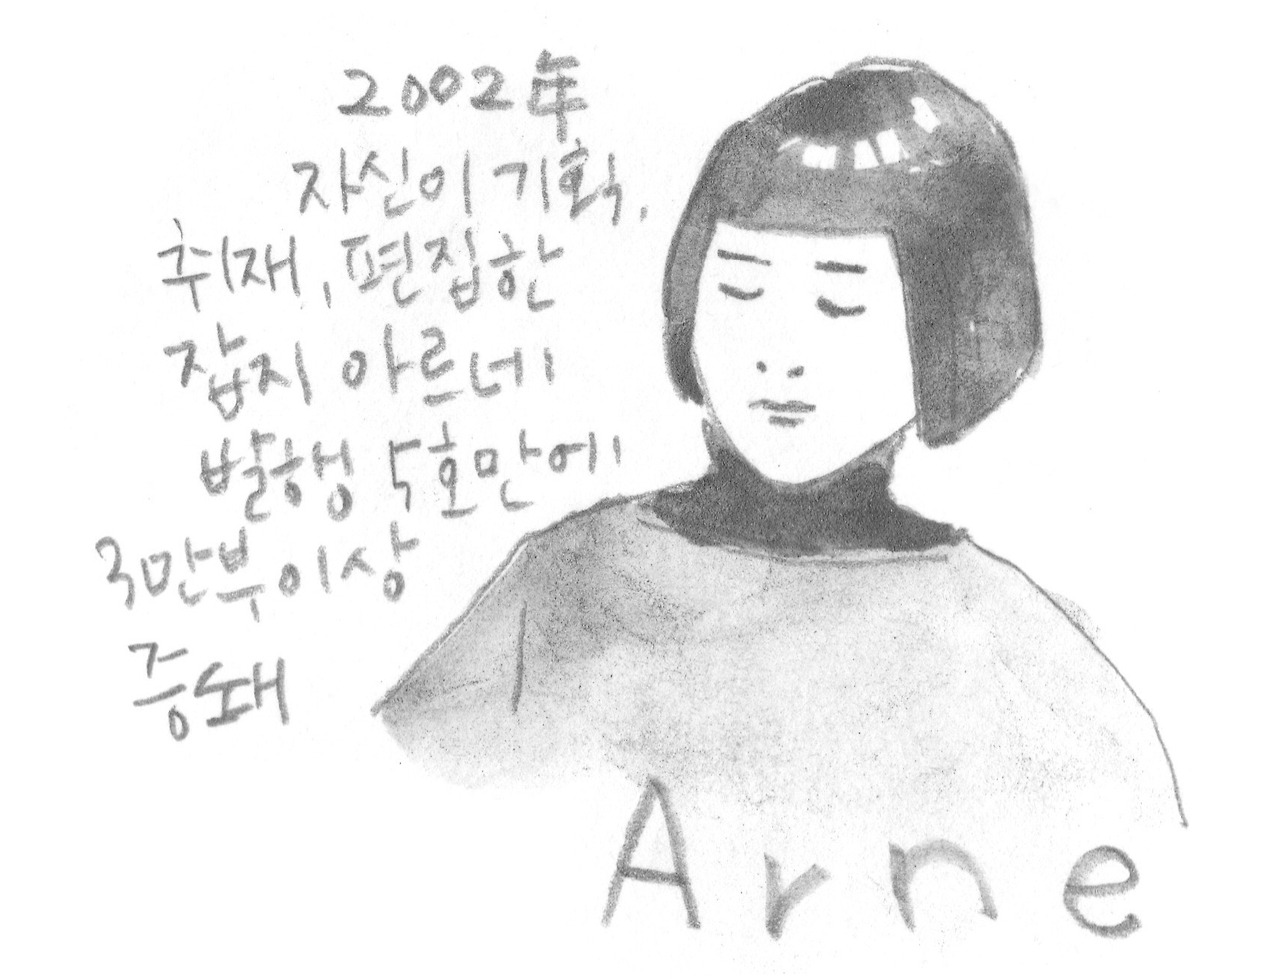 2002年
자신이 기획,
취재, 편집한
잡지 아르네
발행 5호만에
3만부이상
증쇄
Arne